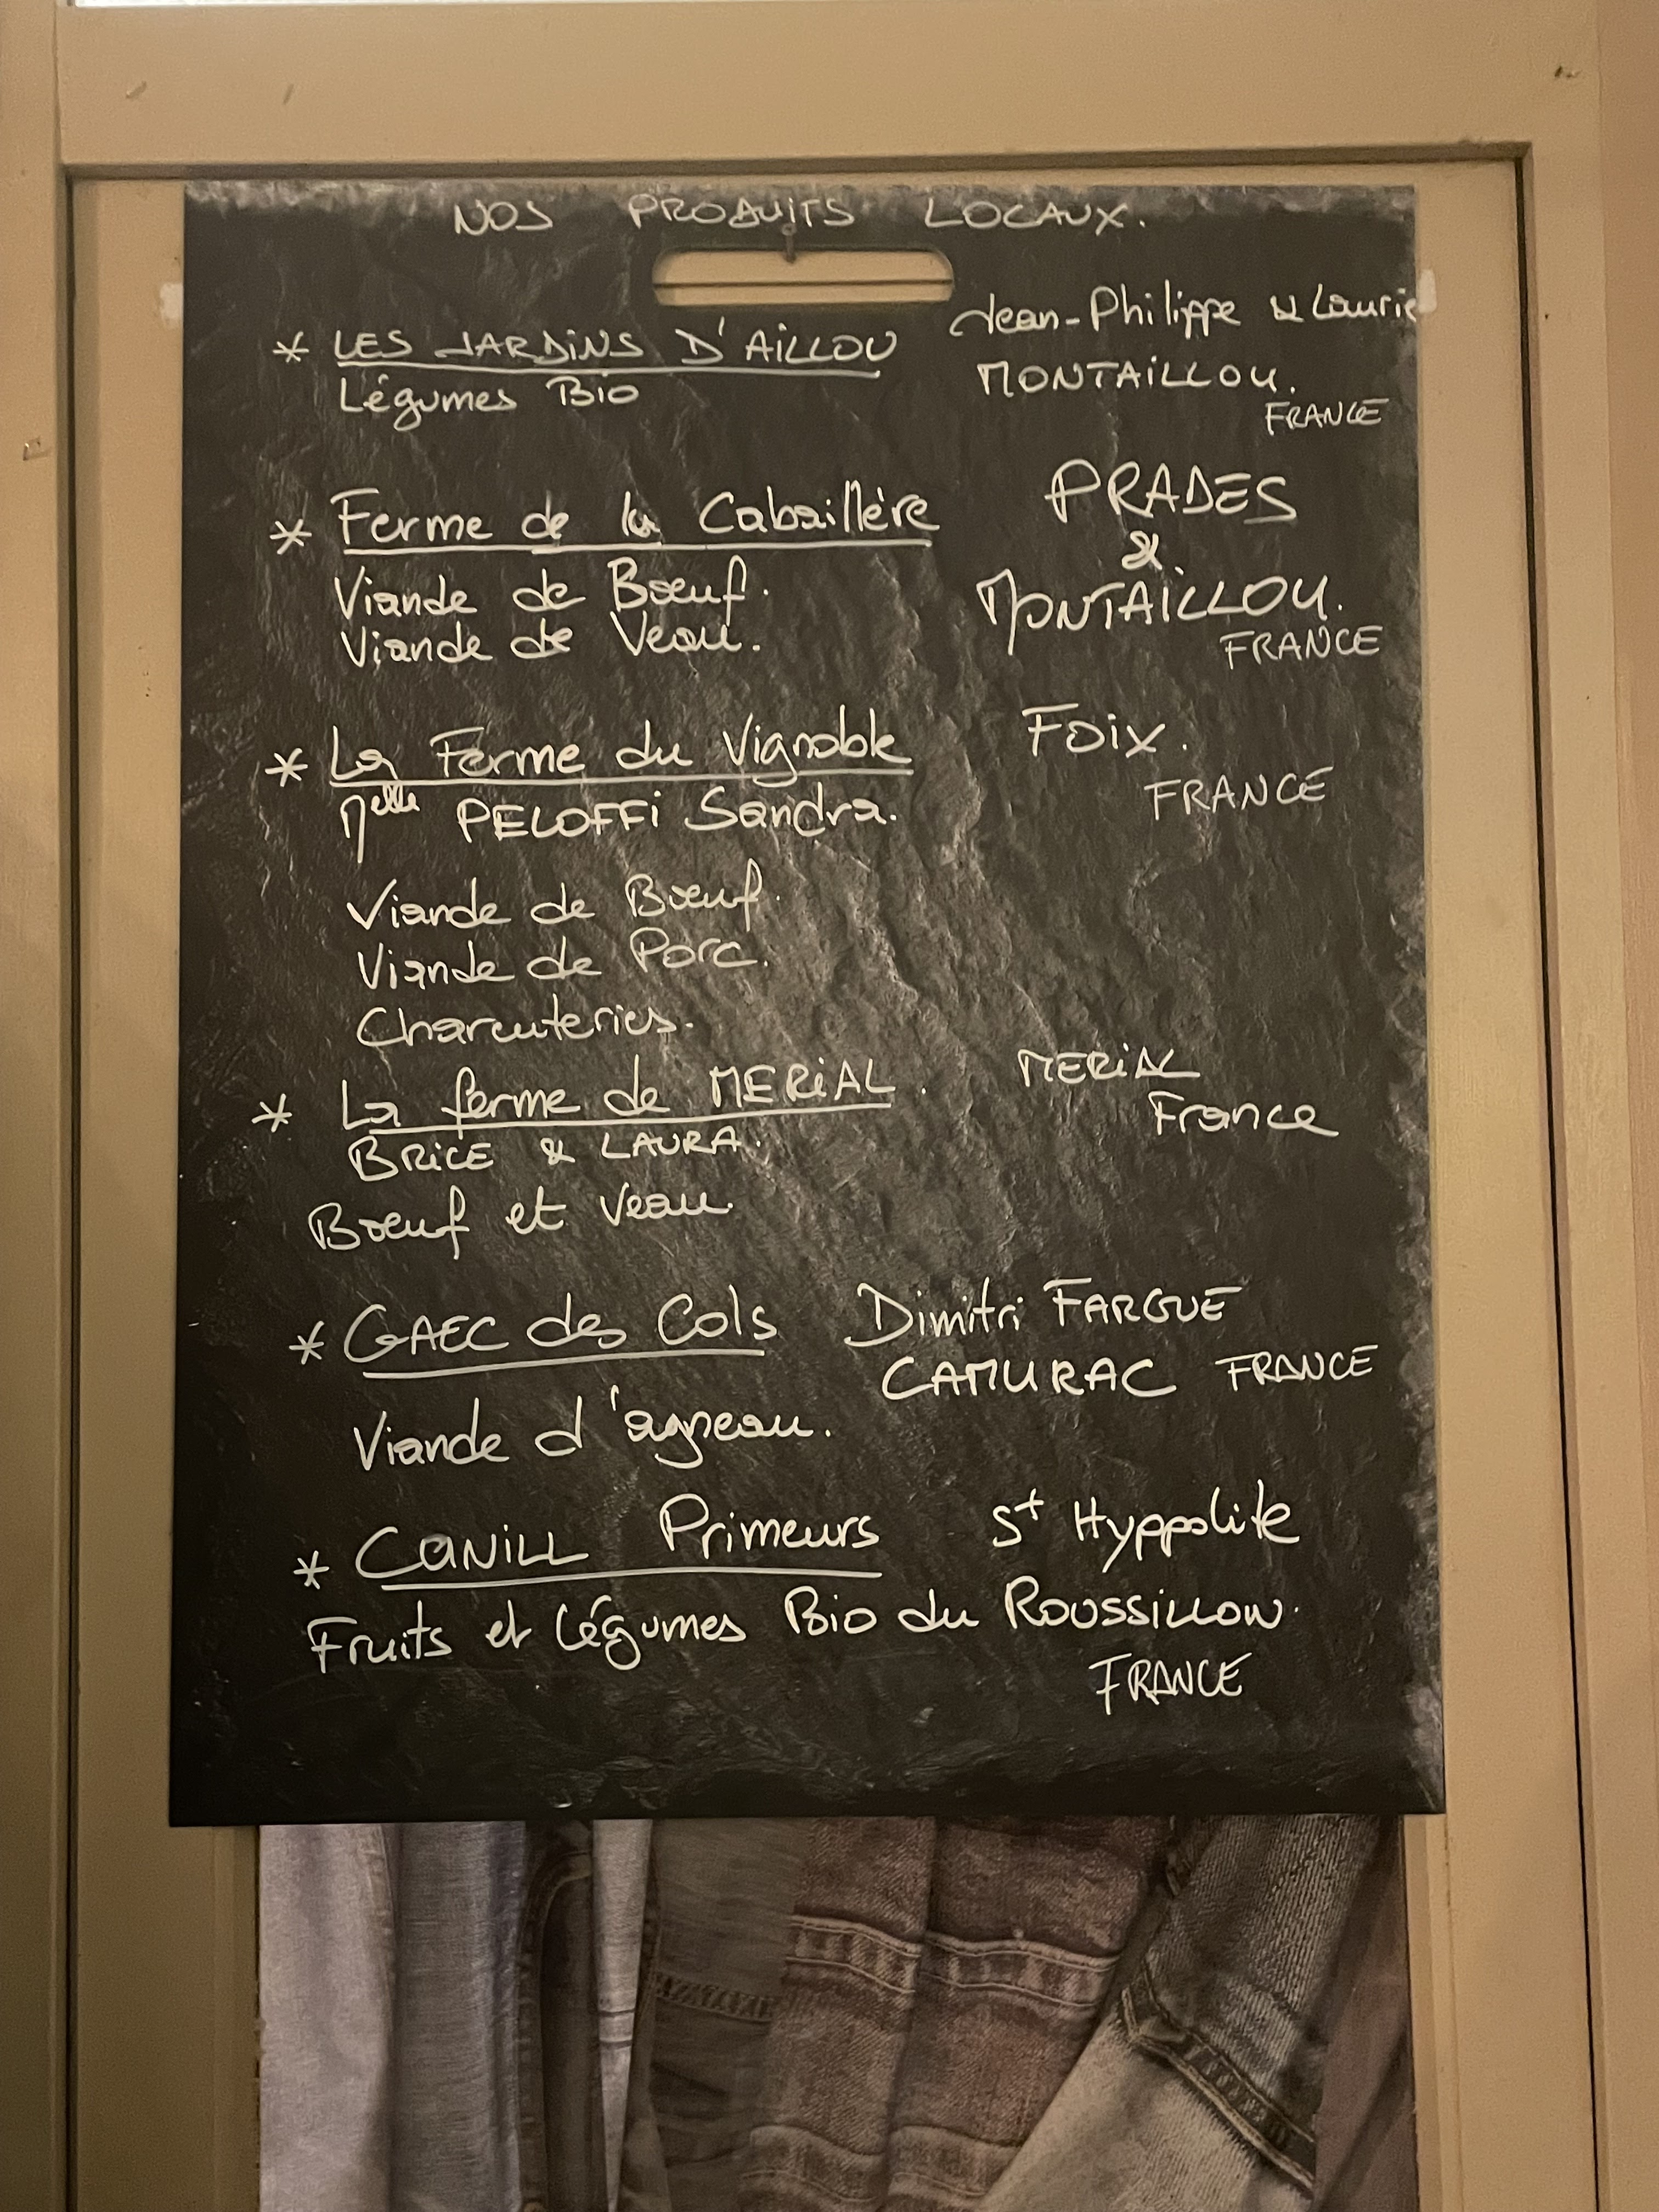 NOS PRODUITS LOCAUX.
* LES JARDINS D'AILLOU Jean-Philippe & Laurie
Légumes Bio MONTAILLOU.
FRANCE
* Ferme de la Cabaillère PRADES
&
Viande de Bœuf. MONTAILLOU.
Viande de Veau. FRANCE
* La Ferme du Vignoble FOIX.
Melle PELOFFI Sandra. FRANCE
Viande de Bœuf.
Viande de Porc.
Charcuteries.
* La ferme de MERIAL. MERIAL
BRICE & LAURA. France
Bœuf et Veau.
* GAEC des Cols Dimitri FARGUE
CAMURAC FRANCE
Viande d'agneau.
* CANILL Primeurs St Hyppolite
Fruits et Légumes Bio du ROUSSILLON.
FRANCE